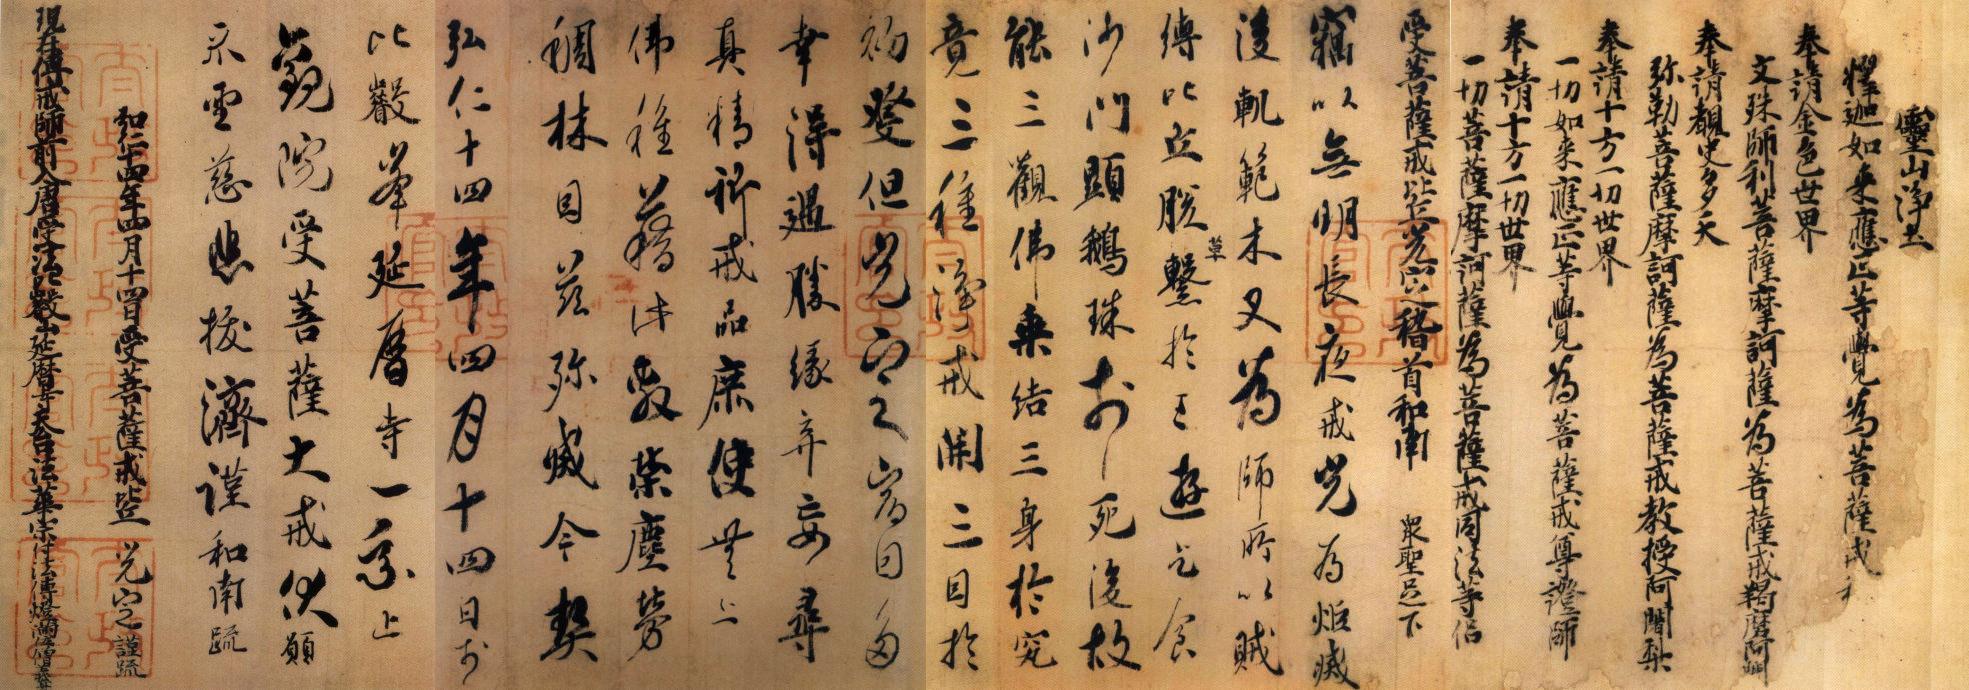 靈山淨土
釋迦如来應正等覺為菩薩戒和
奉請金色世界
文殊師利菩薩摩訶薩為菩薩戒羯磨阿闍
奉請覩史多天
弥勒菩薩摩訶薩為菩薩戒教授阿闍梨
奉請十方一切世界
一切如来應正等覺為菩薩戒尊證師
奉請十方一切世界
一切菩薩摩訶薩為菩薩戒同法等侶
受菩薩戒比丘光定稽首和南 衆聖足下
竊以無明長夜戒光為炬滅
後軌範木叉為師所以賊
縛比丘脱草繋於王遊乞食
沙門顯鵝珠於死後故
能三觀佛乗結三身於究
竟三種淨戒開三因於
初發但光定宿因多
幸得遇勝縁弃妄尋
真精祈戒品庶使無上
佛種藉此敷榮塵勞
稠林因茲弥滅今契
弘仁十四年四月十四日於
比叡峯延暦寺一乗止
觀院受菩薩大戒伏願
示垂慈悲拔濟謹和南疏
弘仁十四年四月十四日受菩薩戒比丘 光定謹疏
現在傳戒師前入唐受法比叡山延暦寺天台法華宗傳法傳燈滿位僧義真